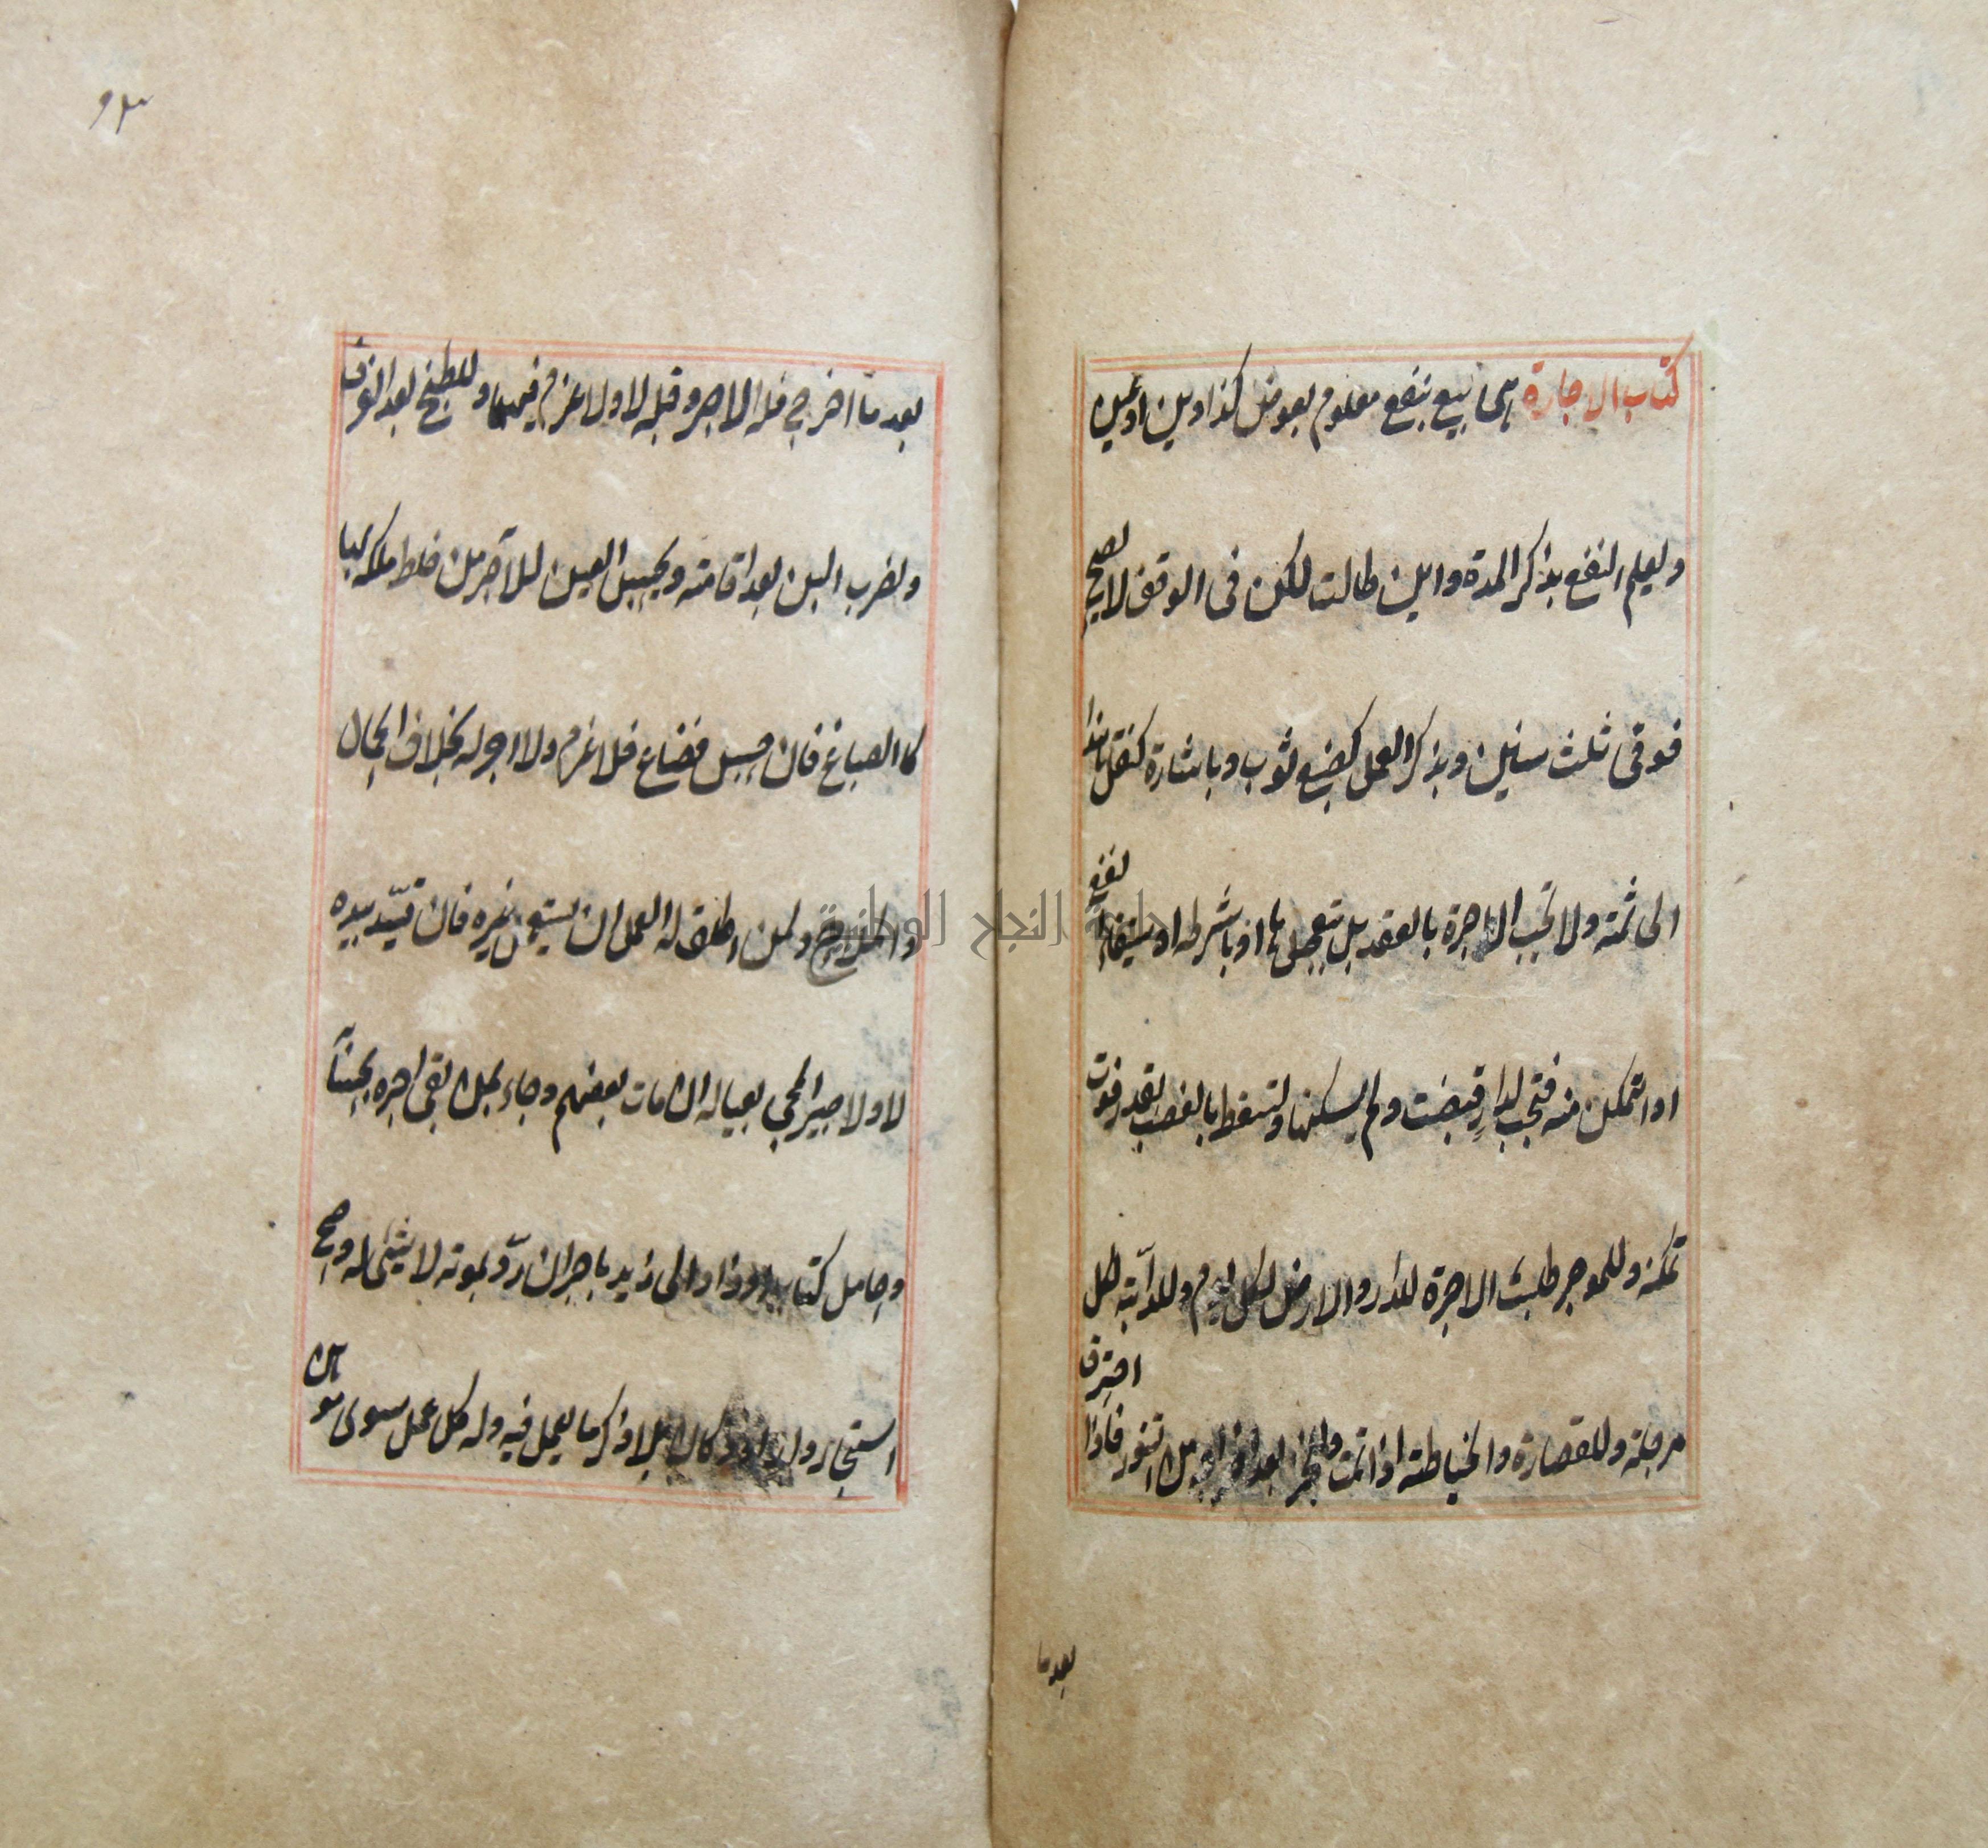 كتاب الاجارة هى بيع نفع معلوم بعوض كذا دين او عين
ويعلم النفع بذكر المدة وان طالت لكن فى الوقف لا يصح
فوق ثلث سنين وبذكر العمل كصبغ ثوب وباشارة كنقل هذا
الى ثمه ولا تجب الاجرة بالعقد بل بتعجيلها او بشرطه او باستيفاء النفع
او التمكن منه فتجب لدار قبضت ولم يسكنها وتسقط بالغصب بقدر فوت
تمكنه وللموجر طلب الاجرة للدار والارض لكل يوم وللدابة لكل
مرحلة وللقصارة والخياطة اذا تمت وللخبز بعد اخراجه من التنور فاذا احترق
بعدما
٩٣
بعد ما اخرج فله الاجر وقبله لا ولا غرم فيهما وللطبخ بعد الغرف
ولضرب اللبن بعد اقامته ويحبس العين للاجر من خلط ملكه بها
كالصباغ فان حبس فضاع فلا غرم ولا اجر له بخلاف الحمال
والملاح ولمن اطلق له العمل ان يستعمل غيره فان قيد بيده
لا ولاجير المجئ بعياله ان مات بعضهم وجاء بمن بقى اجره بحسابه
وحامل كتاب او زاد الى زيد باجر ان رد بموته لا شئ له وصح
استيجار دار او دكان بلا ذكر ما يعمل فيه وله كل عمل سوى موهن